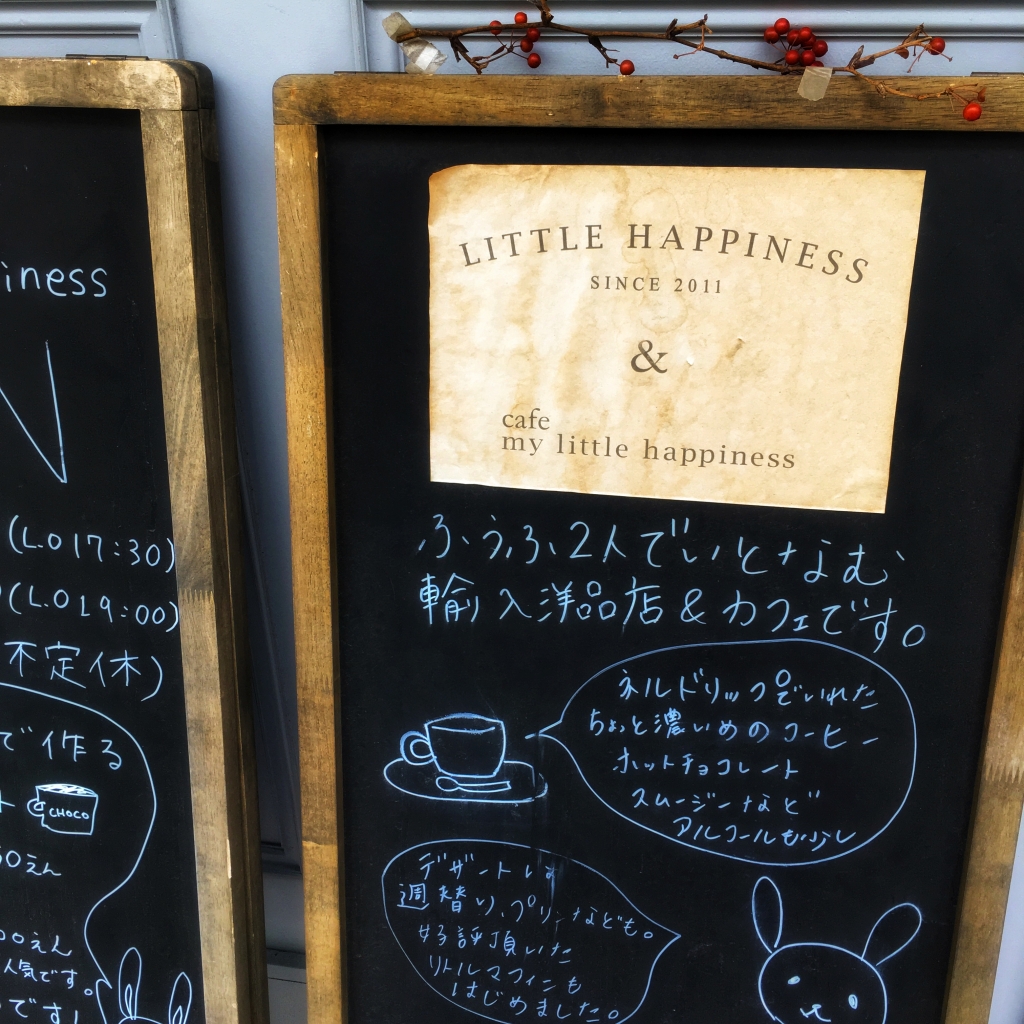 iness
(L.O 17:30)
(L.O 19:00)
不定休)
で作る
ト
CHOCO
50えん
00えん
人気です。
です!
LITTLE HAPPINESS
SINCE 2011
&
cafe
my little happiness
ふうふ2人でいとなむ
輸入洋品店&カフェです。
ネルドリップでいれた
ちょっと濃いめのコーヒー
ホットチョコレート
スムージーなど
アルコールも少し
デザートは
週替り、プリンなども。
好評頂いた
リトルマフィンも
はじめました。